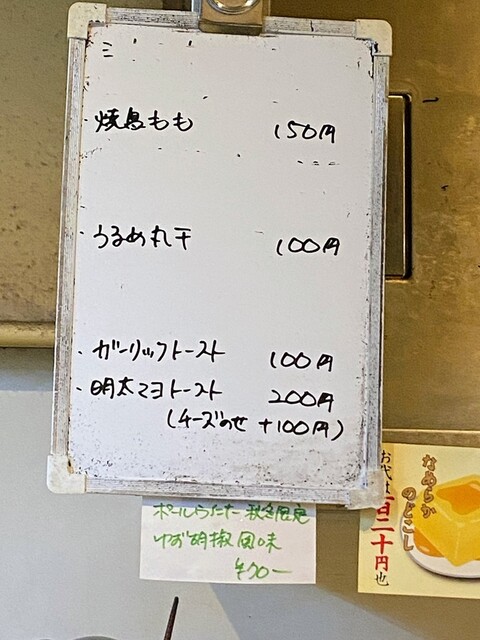 ・焼鳥もも 150円
・うるめ丸干 100円
・ガーリックトースト 100円
・明太マヨトースト 200円
(チーズのせ +100円)
ゆず胡椒風味
¥70-
なめらか
のどごし
お代は百二十円也